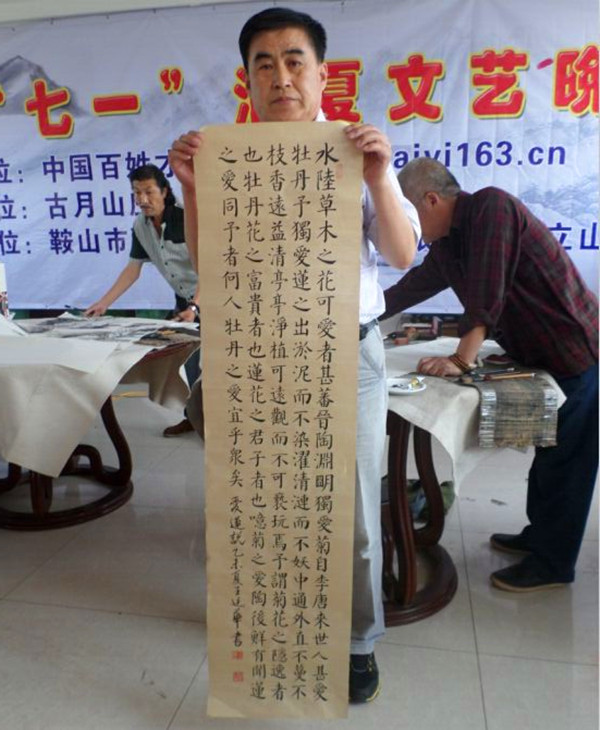 “七一” 夏文艺晚
位: 中国百姓 aiyi163.cn
位: 古月山
位: 鞍山市 立山
水陸草木之花可愛者甚蕃晉陶淵明獨愛菊自李唐來世人甚愛
牡丹予獨愛蓮之出淤泥而不染濯清漣而不妖中通外直不蔓不
枝香遠益清亭亭淨植可遠觀而不可褻玩焉予謂菊花之隱逸者
也牡丹花之富貴者也蓮花之君子者也噫菊之愛陶後鮮有聞蓮
之愛同予者何人牡丹之愛宜乎眾矣 愛蓮說乙未夏 書